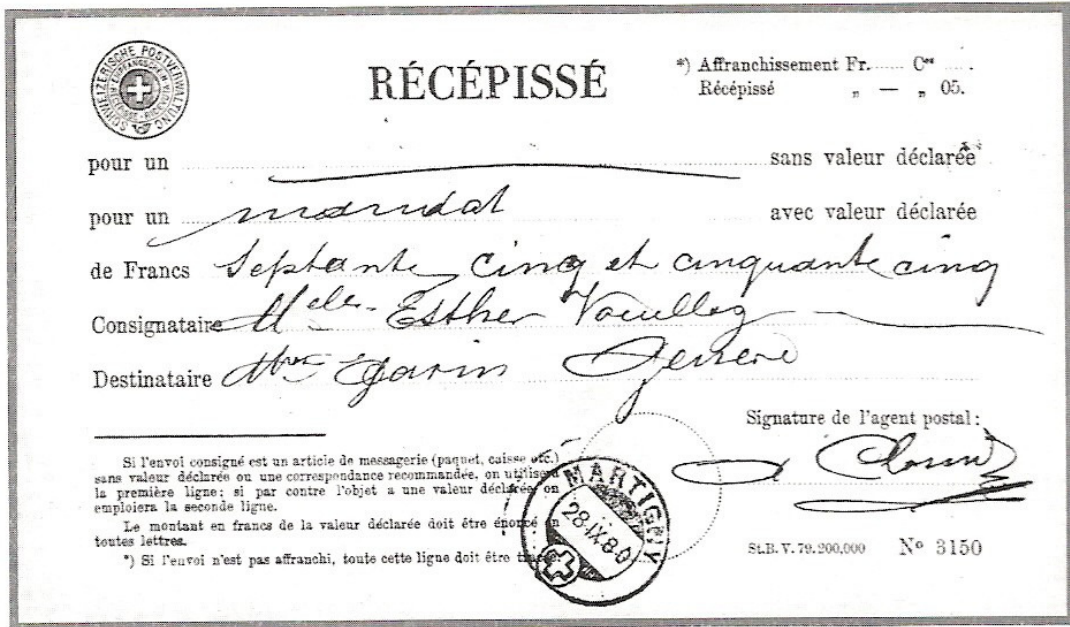 SCHWEIZERISCHE POSTVERWALTUNG
RÉCÉPISSÉ
*) Affranchissement Fr. ...... Ces ..... .
Récépissé „ — „ 05.
pour un sans valeur déclarée
pour un mandat avec valeur déclarée
de Francs Septante cinq et cinquante cinq
Consignataire Melle Esther Vouilloz
Destinataire Mme Genève
Signature de l'agent postal:
Si l'envoi consigné est un article de messagerie (paquet, caisse etc.)
sans valeur déclarée ou une correspondance recommandée, on utilisera
la première ligne; si par contre l'objet a une valeur déclarée on
emploiera la seconde ligne.
Le montant en francs de la valeur déclarée doit être énoncé en
toutes lettres.
*) Si l'envoi n'est pas affranchi, toute cette ligne doit être
MARTIGNY
28.IX.80
St.B.V.79.200,000 No 3150